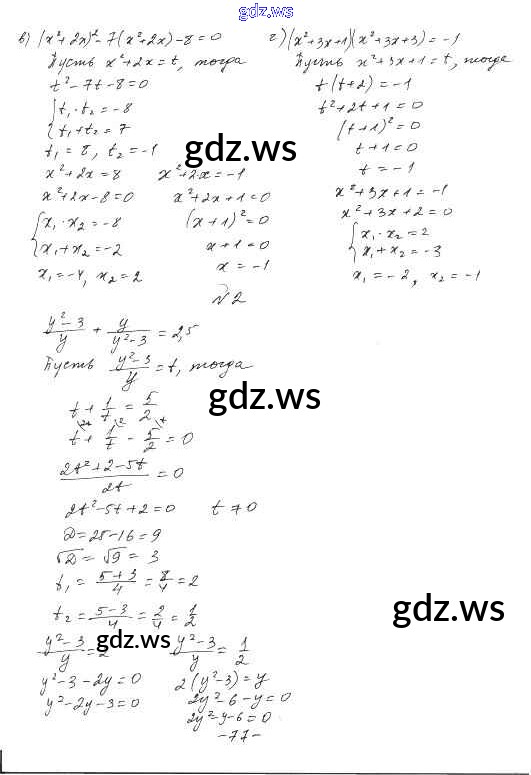 gdz.ws
в) (x²+2x)²-7(x²+2x)-8=0
Пусть x²+2x=t, тогда
t²-7t-8=0
{t₁·t₂=-8
t₁+t₂=7
t₁=8, t₂=-1
x²+2x=8 x²+2x=-1
x²+2x-8=0 x²+2x+1=0
{x₁·x₂=-8 (x+1)²=0
x₁+x₂=-2 x+1=0
x₁=-4, x₂=2 x=-1
г) (x²+3x+1)(x²+3x+3)=-1
Пусть x²+3x+1=t, тогда
t(t+2)=-1
t²+2t+1=0
(t+1)²=0
t+1=0
t=-1
x²+3x+1=-1
x²+3x+2=0
{x₁·x₂=2
x₁+x₂=-3
x₁=-2, x₂=-1
gdz.ws
gdz.ws
№2
(y²-3)/y + y/(y²-3) = 2,5
Пусть (y²-3)/y = t, тогда
t+1/t=5/2
t+1/t-5/2=0
(2t²+2-5t)/2t=0
2t²-5t+2=0 t≠0
D=25-16=9
√D=√9=3
t₁=(5+3)/4=8/4=2
t₂=(5-3)/4=2/4=1/2
(y²-3)/y=2 (y²-3)/y=1/2
y²-3-2y=0 2(y²-3)=y
y²-2y-3=0 2y²-6-y=0
2y²-y-6=0
gdz.ws
gdz.ws
gdz.ws
-77-